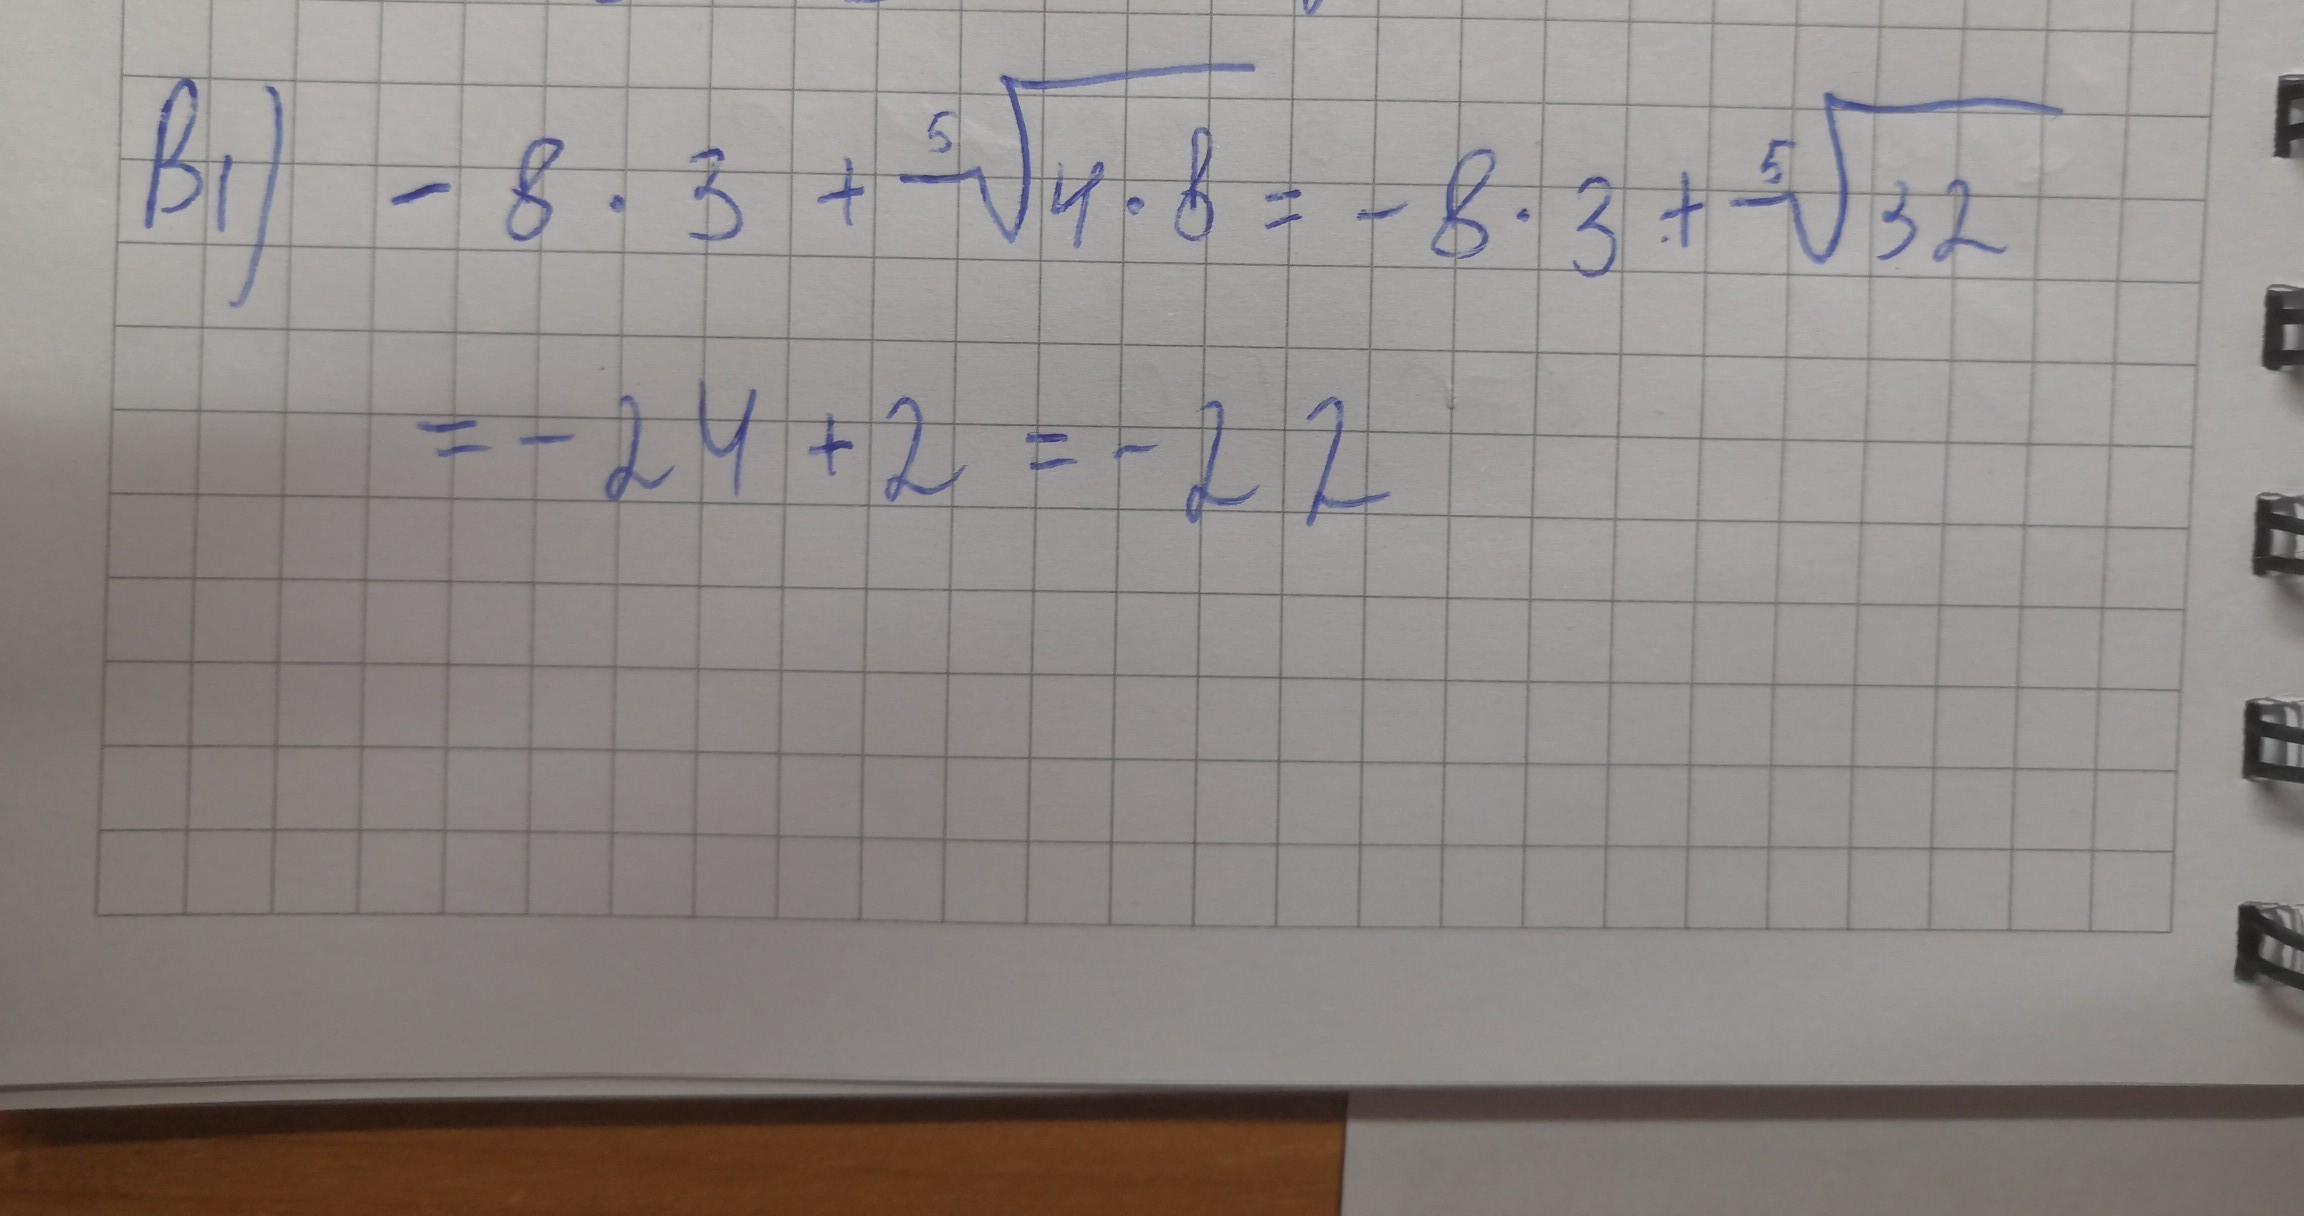 B1) - 8 · 3 + ⁵√4·8 = - 8 · 3 + ⁵√32
= - 24 + 2 = - 22